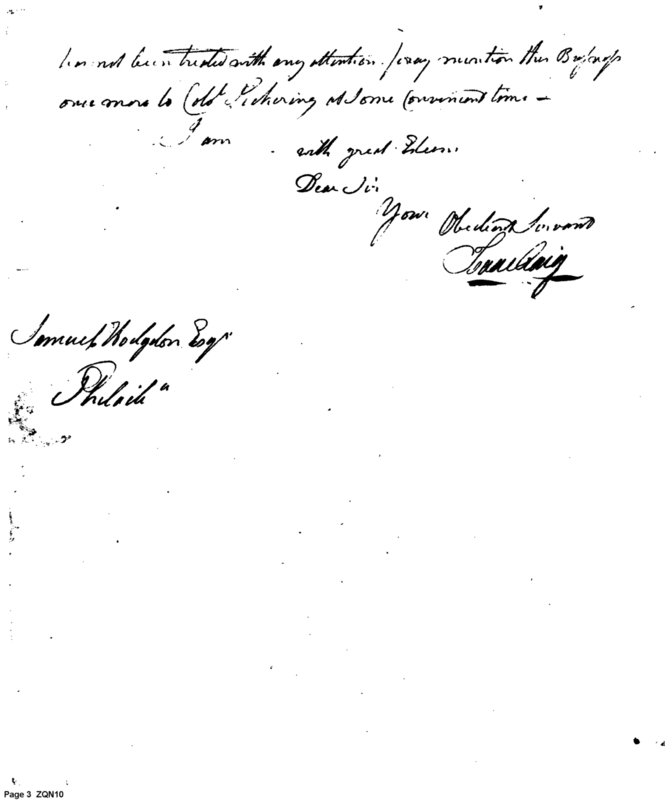 has not been treated with any attention. pray mention this Business
once more to Colo. Pickering at Some Convenient time –
I am
with great Esteem
Dear Sir
Your Obedient Servant
Isaac Craig
Samuel Hodgdon Esqr
Philada
Page 3 ZQN10